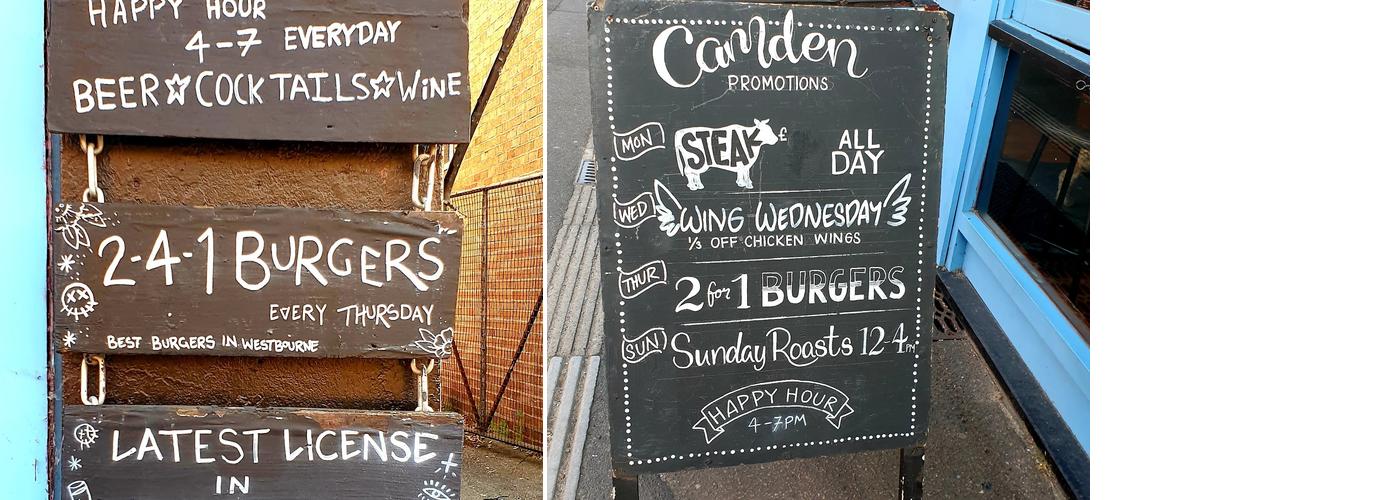 HAPPY HOUR
4-7 EVERYDAY
BEER☆COCKTAILS☆WiNE
2-4-1 BURGERS
EVERY THURSDAY
BEST BURGERS IN WESTBOURNE
LATEST LICENSE
IN
Camden
PROMOTIONS
MON STEAK £ ALL
DAY
WED WING WEDNESDAY
⅓ OFF CHICKEN WINGS
THUR 2 for 1 BURGERS
SUN Sunday Roasts 12-4PM
HAPPY HOUR
4-7PM